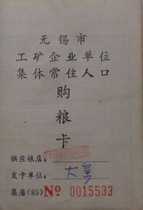 无锡市
工矿企业单位
集体常住人口
购
粮
卡
供应粮店：
发卡单位：大窑
集居(85) № 0015533